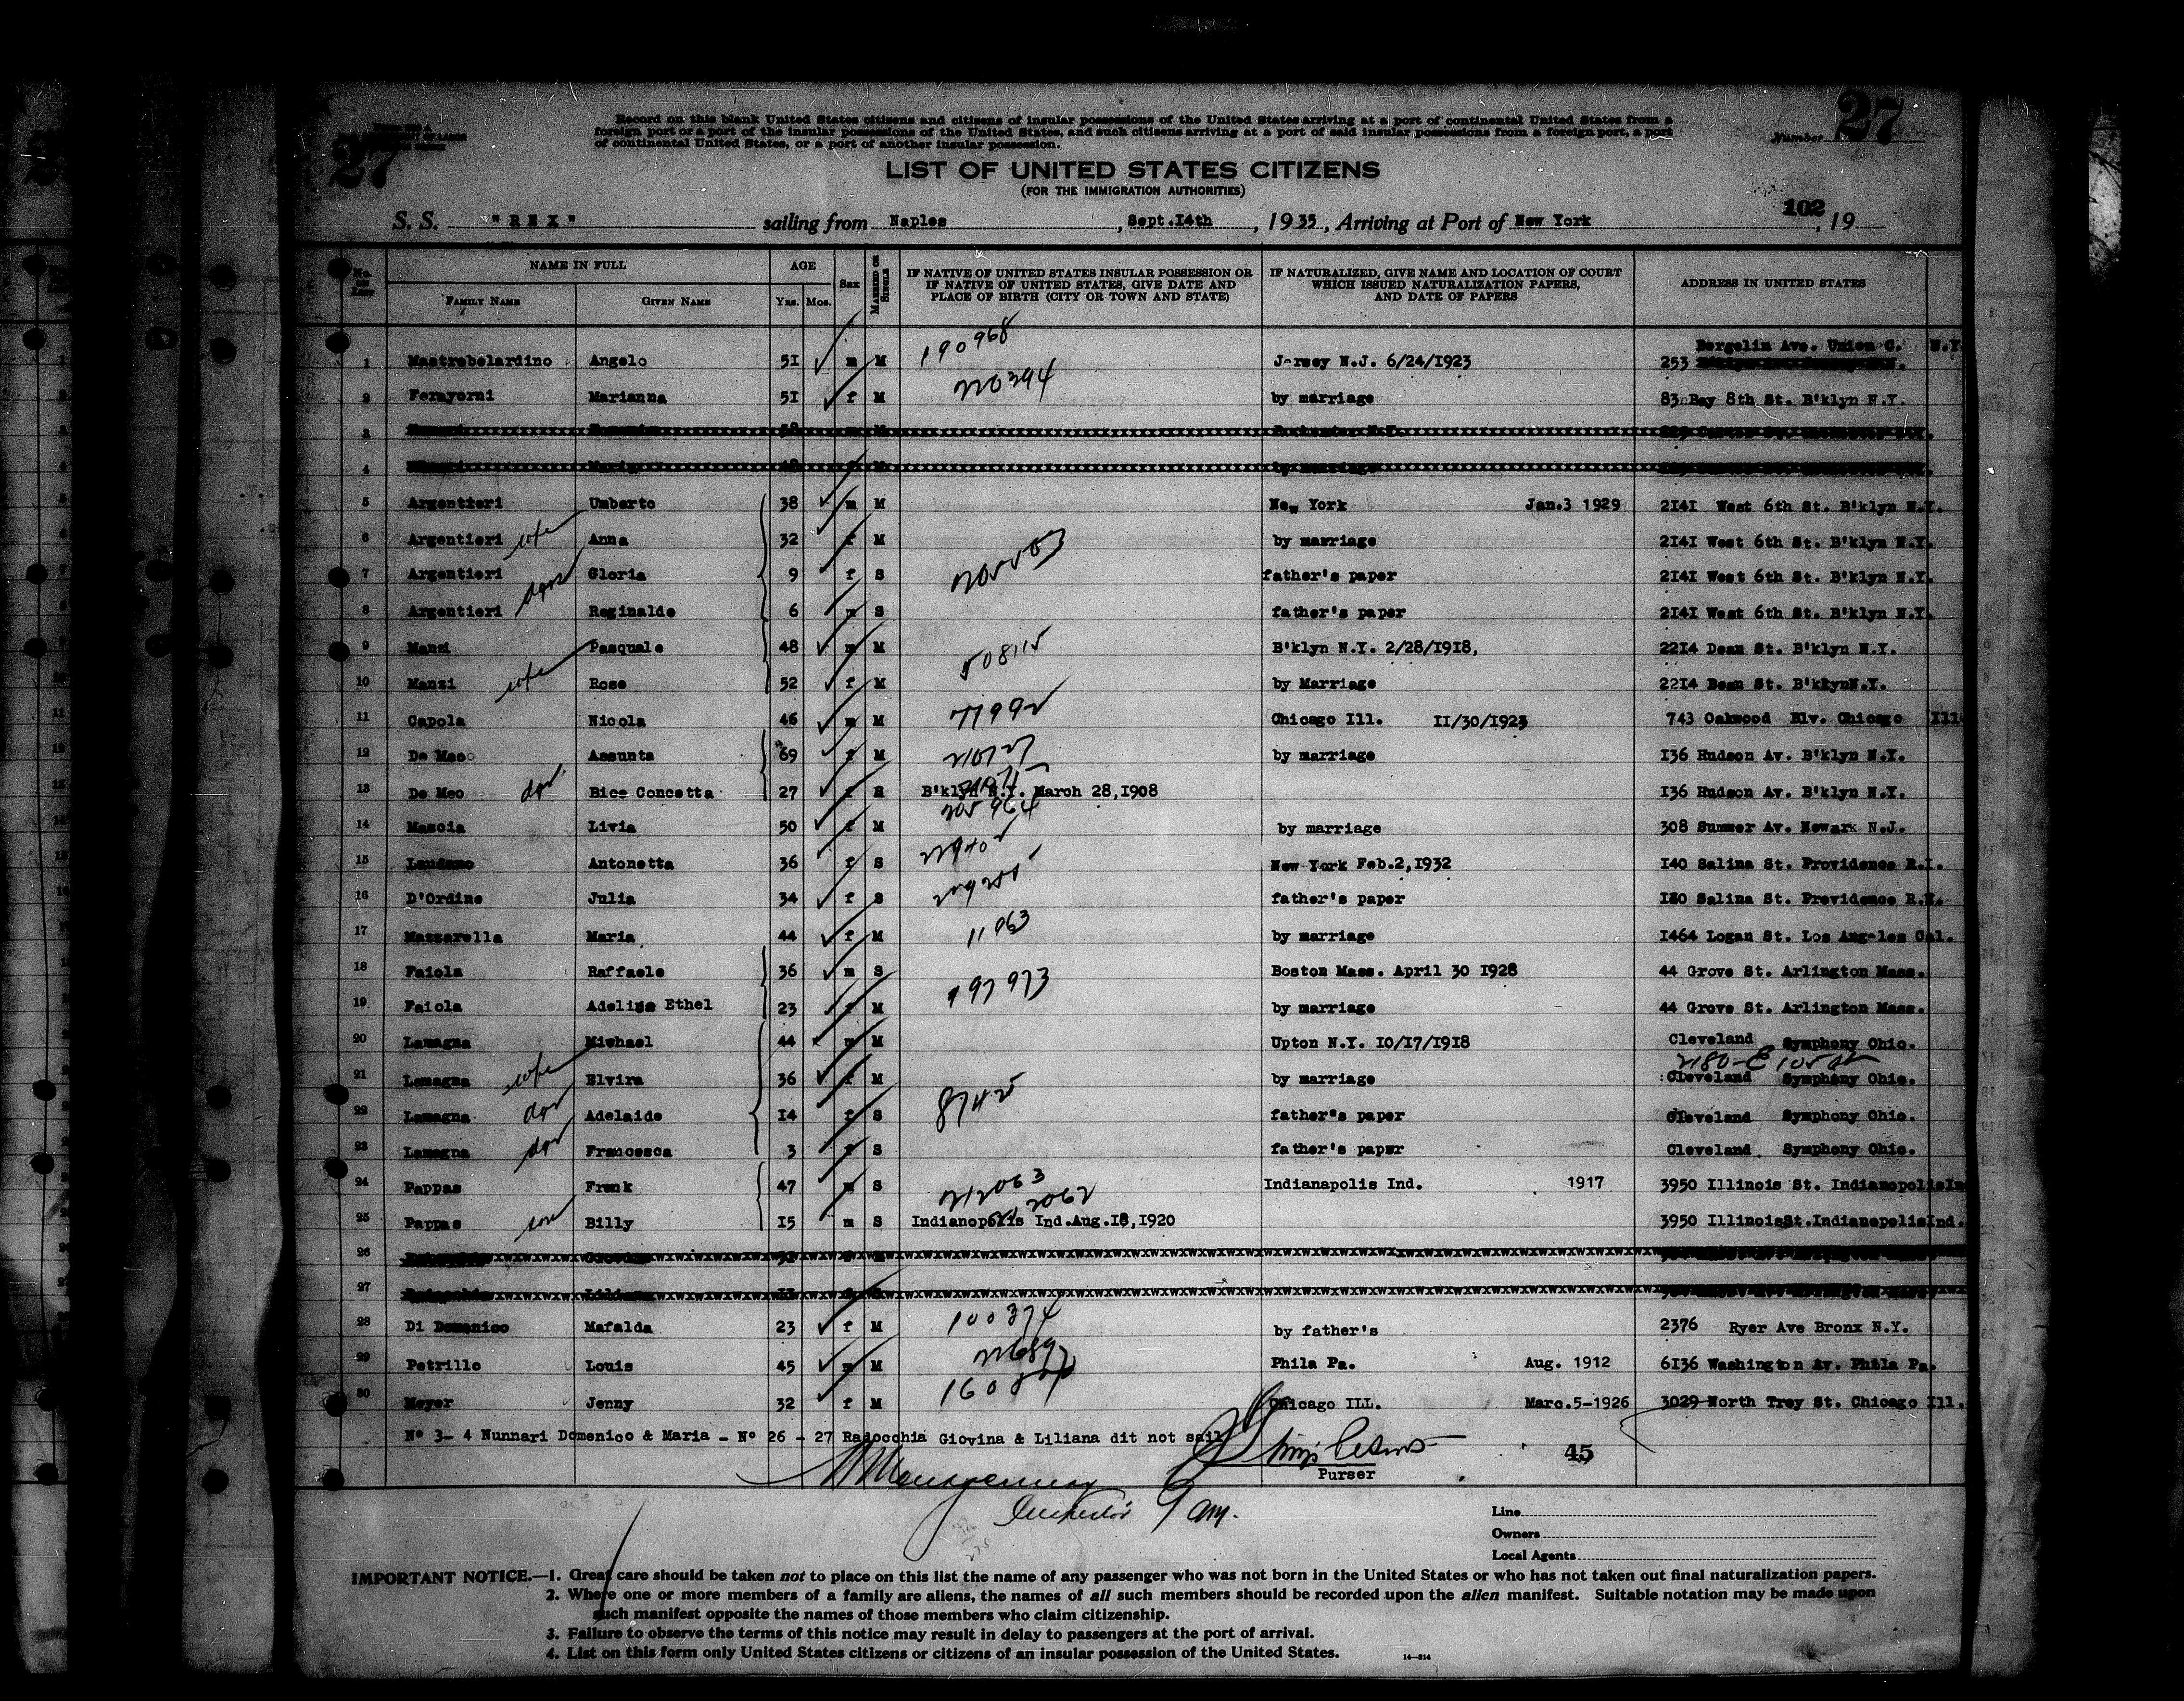 27
27
Record on this blank United States citizens and citizens of insular possessions of the United States arriving at a port of continental United States from a
foreign port or a port of the insular possessions of the United States, and such citizens arriving at a port of said insular possessions from a foreign port, a port
of continental United States, or a port of another insular possession.
Number
LIST OF UNITED STATES CITIZENS
(FOR THE IMMIGRATION AUTHORITIES)
102
S. S. "REX" sailing from Naples, Sept.14th, 1935, Arriving at Port of New York, 19
No. on List NAME IN FULL AGE Sex MARRIED OR SINGLE IF NATIVE OF UNITED STATES INSULAR POSSESSION OR IF NATIVE OF UNITED STATES, GIVE DATE AND PLACE OF BIRTH (CITY OR TOWN AND STATE) IF NATURALIZED, GIVE NAME AND LOCATION OF COURT WHICH ISSUED NATURALIZATION PAPERS, AND DATE OF PAPERS ADDRESS IN UNITED STATES
FAMILY NAME GIVEN NAME YRS. MOS.
1 Mastrobelardino Angelo 51 m M 190968 Jersey N.J. 6/24/1923 253 Bergelin Ave. Union C. N.Y
2 Ferayorni Marianna 51 f M 220394 by marriage 83 Bay 8th St. B'klyn N.Y.
3 Rochester N.Y.
4 Maria by marriage
5 Argentieri Umberto 38 m M New York Jan.3 1929 2141 West 6th St. B'klyn N.Y.
6 Argentieri wife Anna 32 f M by marriage 2141 West 6th St. B'klyn N.Y.
7 Argentieri Gloria 9 f S father's paper 2141 West 6th St. B'klyn N.Y.
8 Argentieri Reginaldo 6 m S father's paper 2141 West 6th St. B'klyn N.Y.
9 Manzi Pasquale 48 m M B'klyn N.Y. 2/28/1918, 2214 Dean St. B'klyn N.Y.
10 Manzi wife Rose 52 f M by Marriage 2214 Bean St. B'klynN.Y.
11 Capola Nicola 46 m M 71992 Chicago Ill. 11/30/1923 743 Oakwood Blv. Chicago Ill
12 De Meo Assunta 69 f M 210727 by marriage 136 Hudson Av. B'klyn N.Y.
13 De Meo dau Bice Concetta 27 f S B'klyn N.Y. March 28,1908 136 Hudson Av. B'klyn N.Y.
14 Mascia Livia 50 f M 205964 by marriage 308 Summer Av. Newark N.J.
15 Laudano Antonetta 36 f S New York Feb.2,1932 140 Salina St. Providence R.I.
16 D'Ordine Julia 34 f S father's paper 130 Salina St. Providence R.I.
17 Mazzarella Maria 44 f M 11963 by marriage 1464 Logan St. Los Angeles Cal.
18 Faiola Raffaele 36 m S Boston Mass. April 30 1928 44 Grove St. Arlington Mass.
19 Faiola Adeline Ethel 23 f M 197973 by marriage 44 Grove St. Arlington Mass.
20 Lamagna Michael 44 m M Upton N.Y. 10/17/1918 Cleveland Symphony Ohio.
2180-E 105 St
21 Lamagna wife Elvira 36 f M by marriage Cleveland Symphony Ohio.
22 Lamagna dau Adelaide 14 f S 87425 father's paper Cleveland Symphony Ohio.
23 Lamagna dau Francesca 3 f S father's paper Cleveland Symphony Ohio.
24 Pappas Frank 47 m S 212063 Indianapolis Ind. 1917 3950 Illinois St. IndianopolisIn
25 Pappas son Billy 15 m S 2062 Indianopolis Ind.Aug.18,1920 3950 IllinoisSt.IndianapolisInd.
26
27
28 Di Domenico Mafalda 23 f M 100374 by father's 2376 Ryer Ave Bronx N.Y.
29 Petrillo Louis 45 m M Phila Pa. Aug. 1912 6136 Washington Av. Phila Pa.
30 Meyer Jenny 32 f M Chicago ILL. Marc.5-1926 3029 North Troy St. Chicago Ill.
Nº 3- 4 Nunnari Domenico & Maria - Nº 26 - 27 Radocchia Giovina & Liliana dit not sail
Purser
45
Line
Owners
Local Agents
IMPORTANT NOTICE.—1. Great care should be taken not to place on this list the name of any passenger who was not born in the United States or who has not taken out final naturalization papers.
2. Where one or more members of a family are aliens, the names of all such members should be recorded upon the alien manifest. Suitable notation may be made upon
such manifest opposite the names of those members who claim citizenship.
3. Failure to observe the terms of this notice may result in delay to passengers at the port of arrival.
4. List on this form only United States citizens or citizens of an insular possession of the United States.
14—814